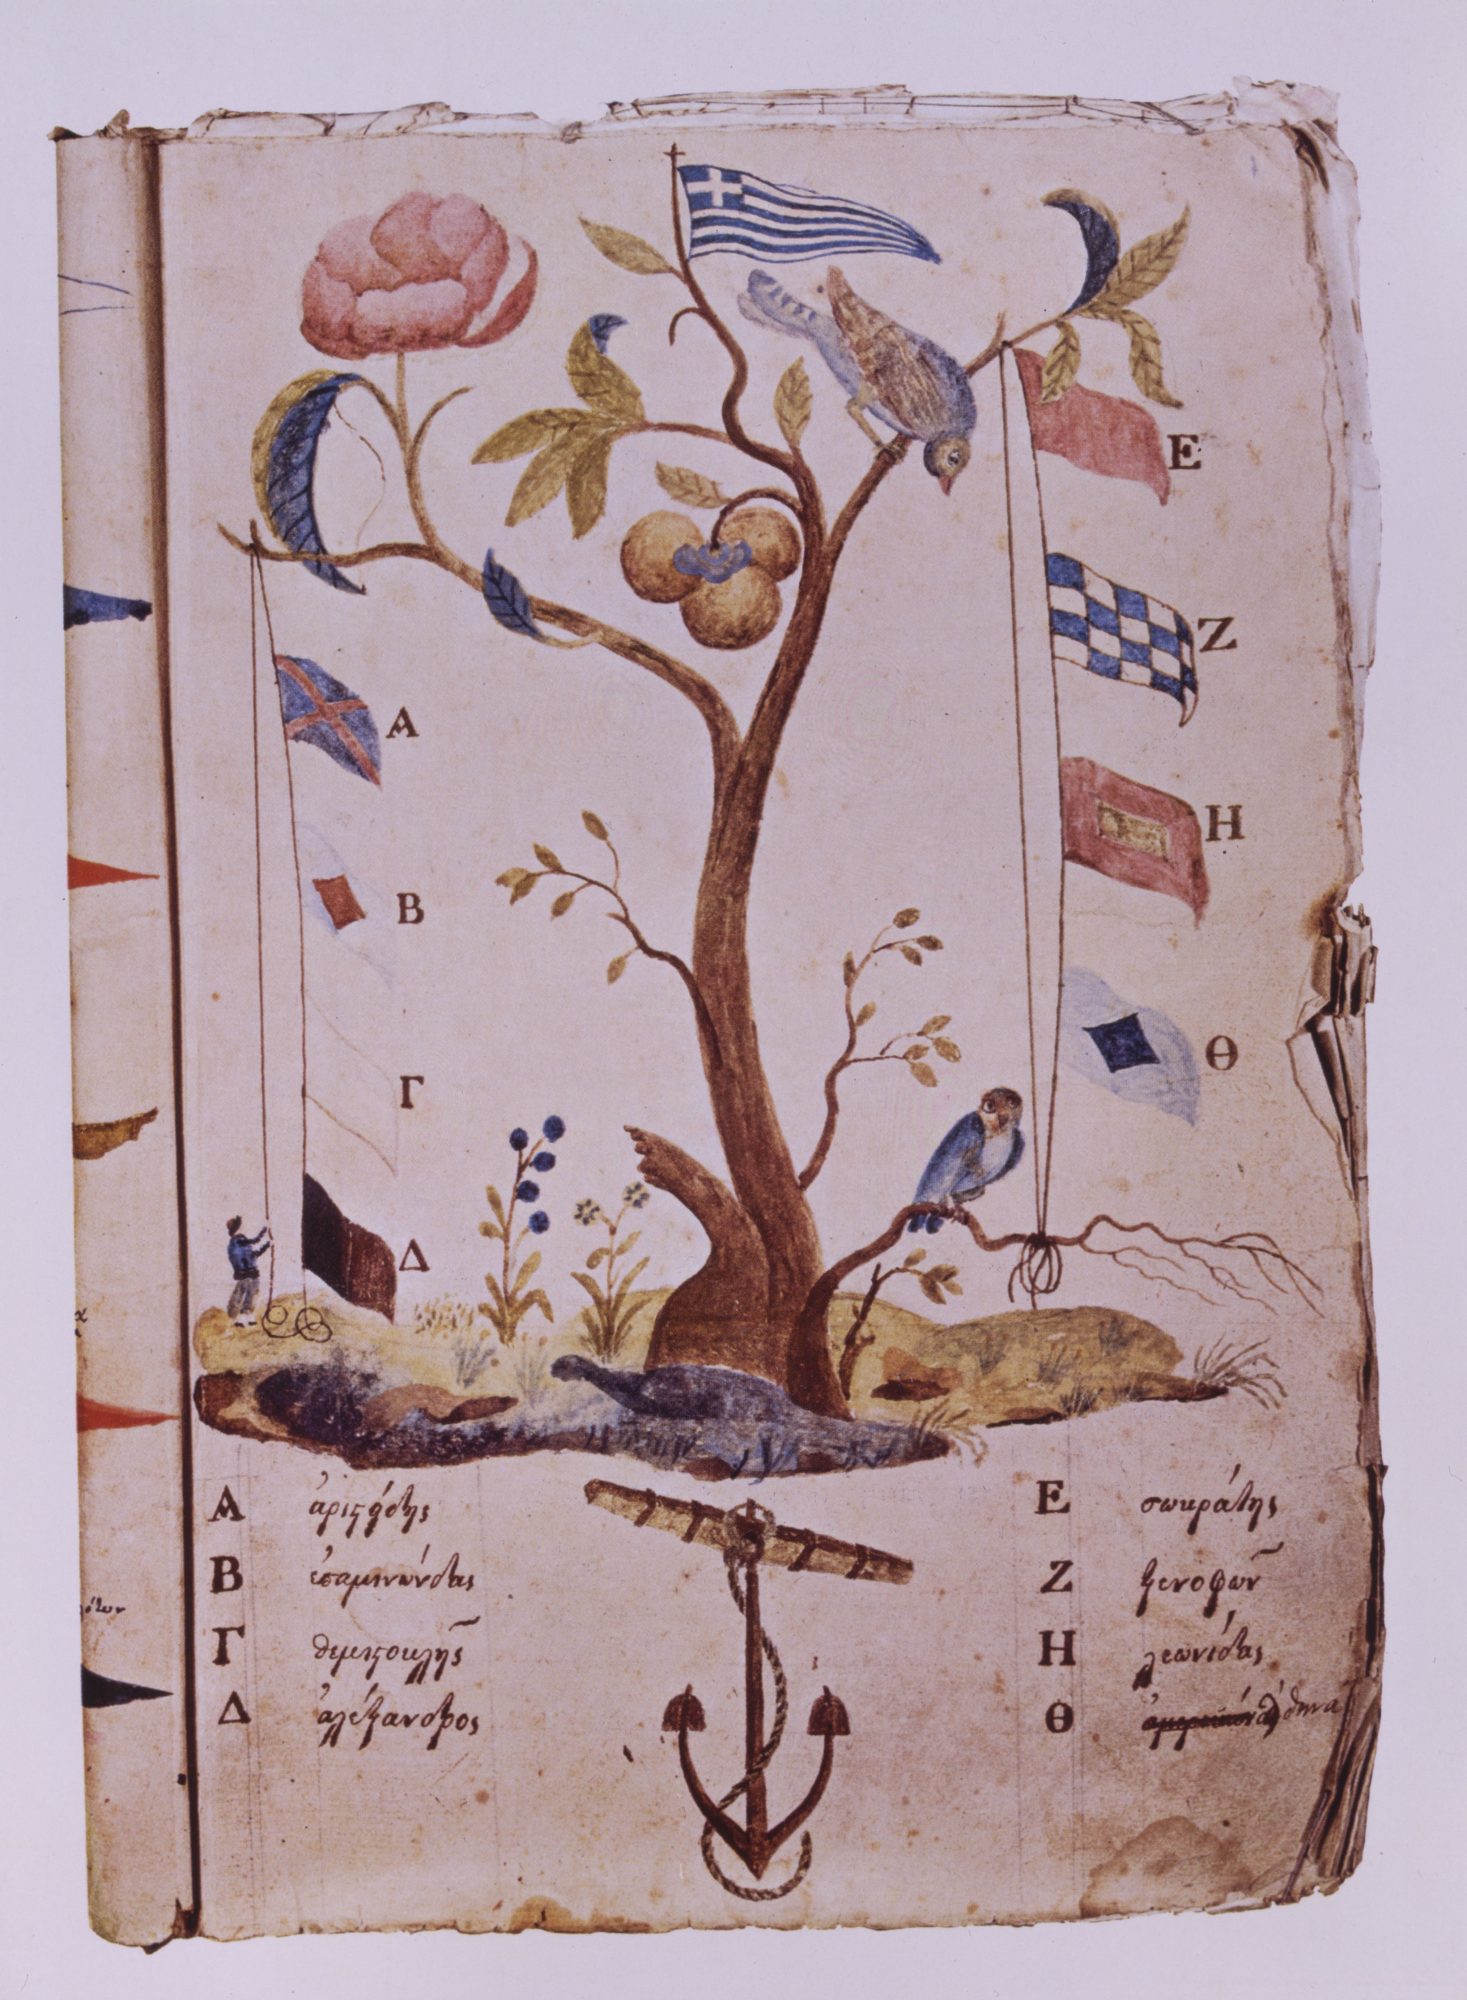 Α
Β
Γ
Δ
Ε
Ζ
Η
Θ
Α ἀριςείδης
Β ἐπαμινώνδας
Γ θεμιςοκλῆς
Δ ἀλέξανδρος
Ε σωκράτης
Ζ ξενοφῶν
Η λεωνίδας
Θ ἀθηνᾶ